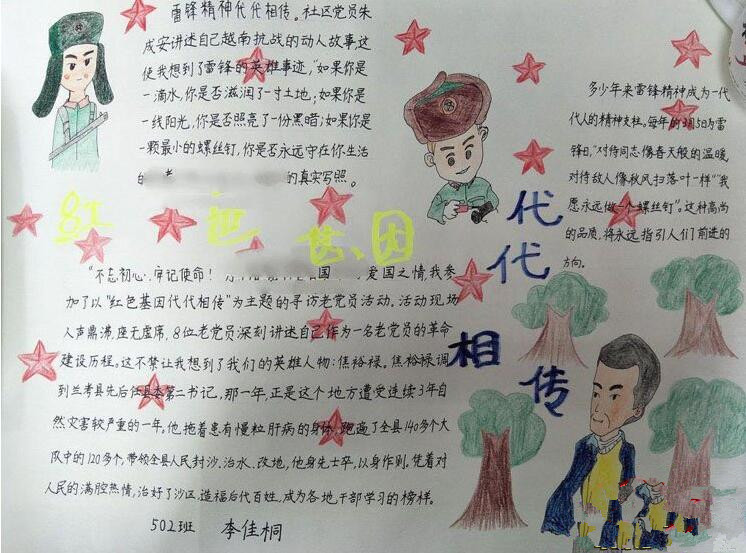 雷锋精神代代相传。社区党员朱
成安讲述自己越南抗战的动人故事这
使我想到了雷锋的英雄事迹,“如果你是
一滴水,你是否滋润了一寸土地;如果你是
一线阳光,你是否照亮了一份黑暗;如果你是
一颗最小的螺丝钉,你是否永远守在你生活
的真实写照。
多少年来雷锋精神成为一代
代人的精神支柱。每年的3月5日为雷
锋日,“对待同志像春天般的温暖
对待敌人像秋风扫落叶一样”“我
愿永远做一个螺丝钉”。这种高尚
的品质,将永远指引人们前进的
方向。
红色基因
代代
相传
“不忘初心,牢记使命!国爱国之情,我参
加了以“红色基因代代相传”为主题的寻访老党员活动。活动现场
人声鼎沸,座无虚席,8位老党员深刻讲述自己作为一名老党员的革命
建设历程。这不禁让我想到了我们的英雄人物:焦裕禄。焦裕禄调
到兰考县先后任县委第二书记,那一年,正是这个地方遭受连续3年自
然灾害较严重的一年。他拖着患有慢粒肝病的身体,跑遍了全县140多个大
队中的120多个,带领全县人民封沙、治水、改地,他身先士卒,以身作则,凭着对
人民的满腔热情,治好了沙区,造福后代百姓,成为各地干部学习的榜样。
502班 李佳桐